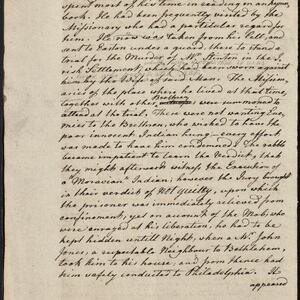 spent most of his time in reading an hymn
book. He had been frequently visited by the
Missionary who had a particular regard for
him. He now was taken from his Cell, and
sent to Easton under a guard, there to stand a
trial for the Murder of Mr. Stinton in the I-
rish Settlement, which was sworn against
him by the Wife of said Man. The Mission-
aries of the place where he lived at that time,
together with other Brethren were summoned to
attend at the trial. There were not wanting Ene-
mies to the Brethren, who wished to have the
poor innocent Indian hung—every effort
was made to have him condemned. The rabble
became impatient to learn the Verdict, that
they might afterwards witness the Execution of
a "Moravian" Indian; however the Jury brought
in their verdict of Not Guilty, upon which
the prisoner was immediately relieved from
confinement, yet on account of the Mob, who
were enraged at his liberation, he had to be
kept hidden untill Night, when a Mr. John
Jones, a respectable Neighbour to Bethlehem,
took him to his house; and from thence had
him safely conducted to Philadelphia. It
appeared